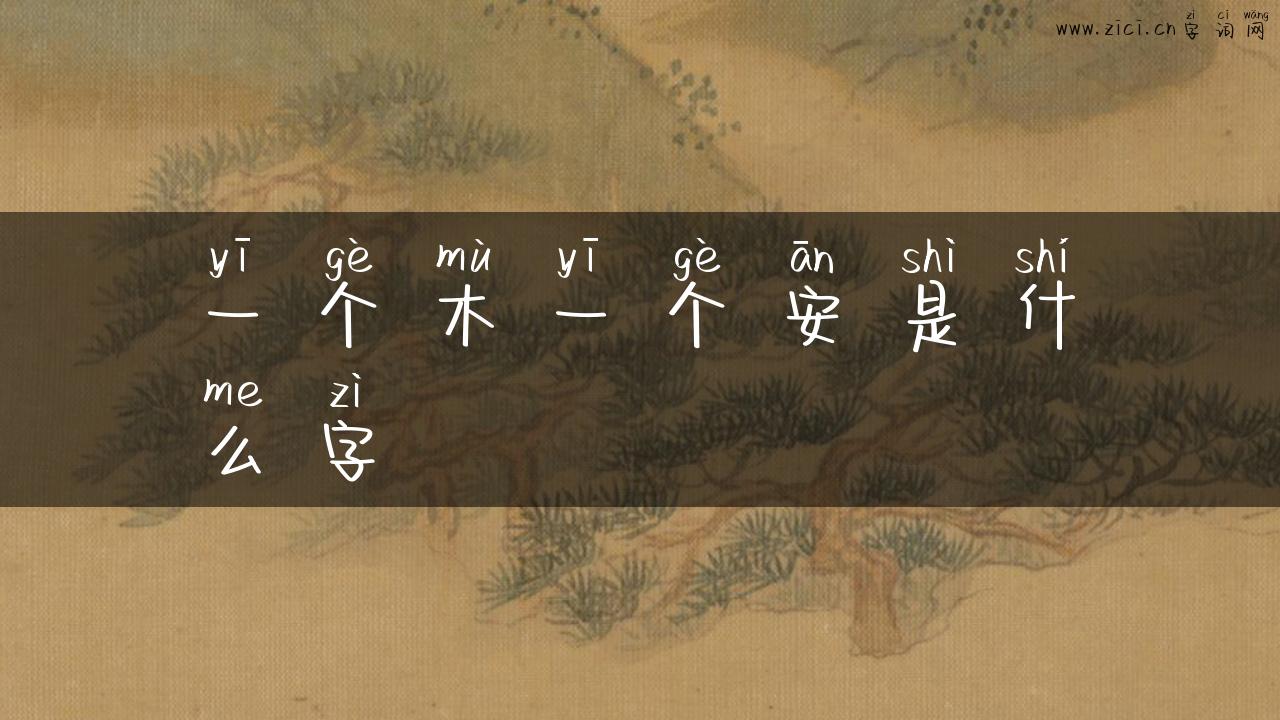 zì cí wǎng
www.zici.cn 字词网
yī gè mù yī gè ān shì shí
一个木一个安是什
me zì
么字